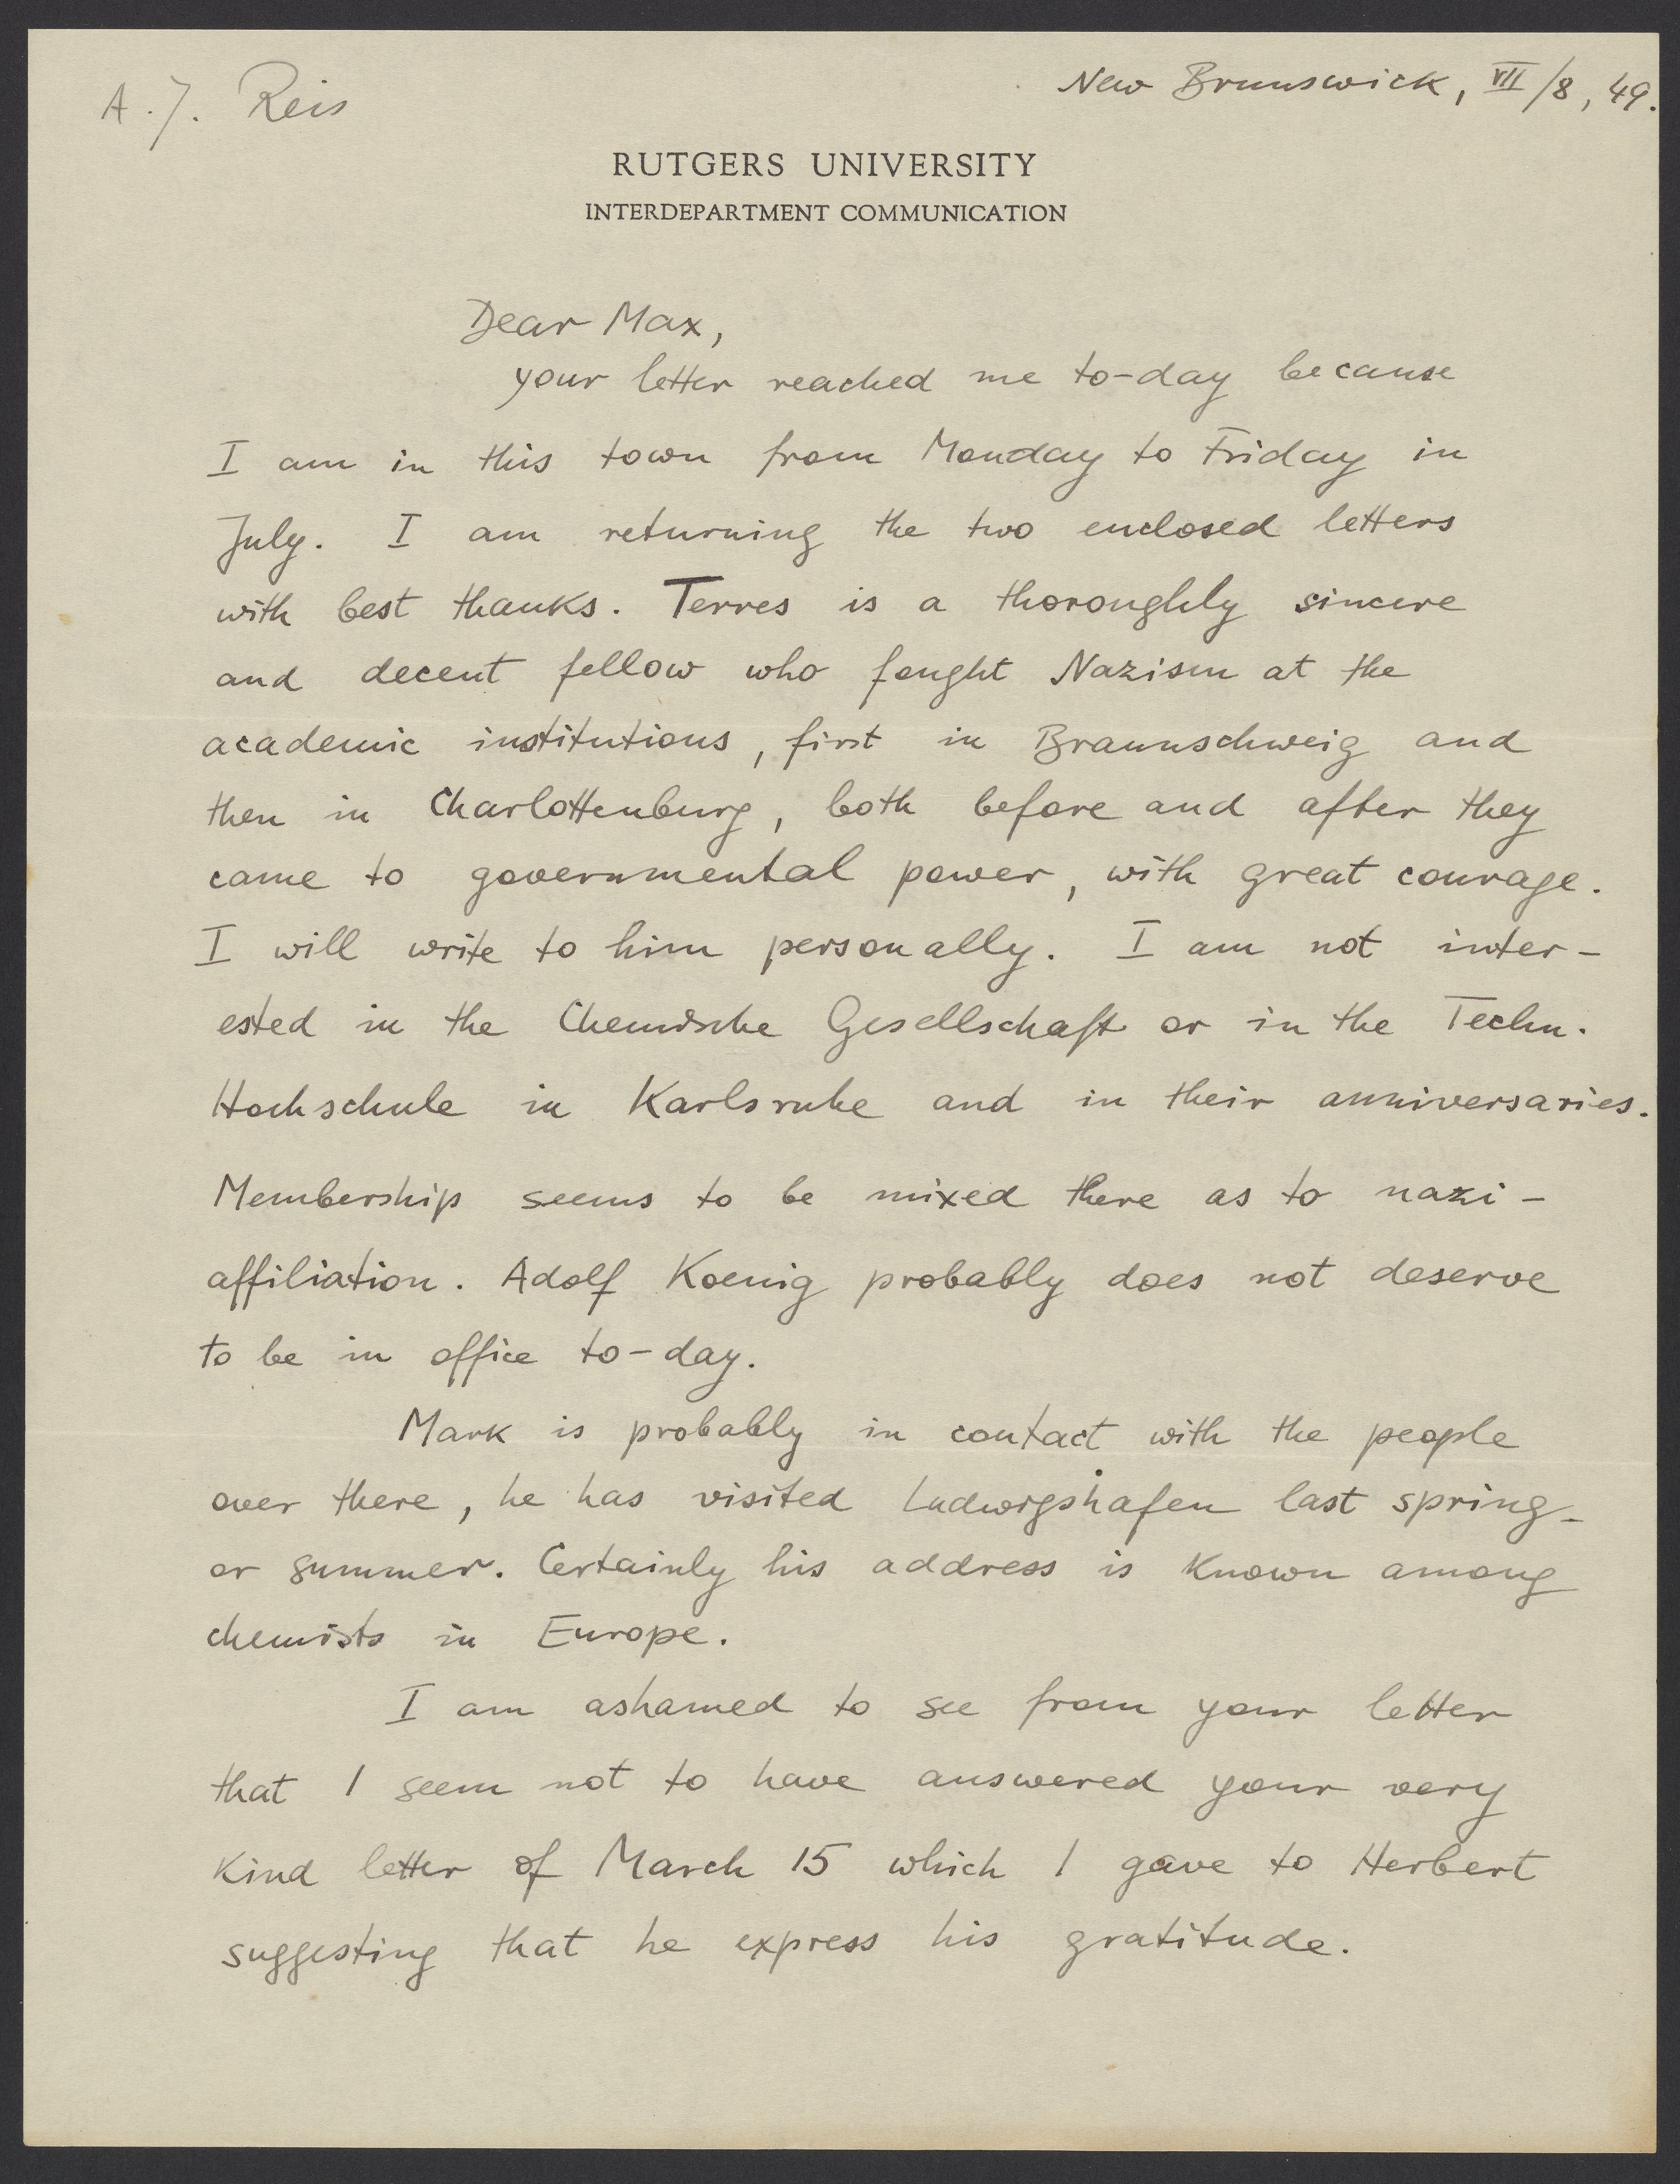 A. J. Reis
New Brunswick, VII/8, 49.
RUTGERS UNIVERSITY
INTERDEPARTMENT COMMUNICATION
Dear Max,
your letter reached me to-day because
I am in this town from Monday to Friday in
July. I am returning the two enclosed letters
with best thanks. Terres is a thoroughly sincere
and decent fellow who fought Nazism at the
academic institutions, first in Braunschweig and
then in Charlottenburg, both before and after they
came to governmental power, with great courage.
I will write to him personally. I am not inter-
ested in the Chemische Gesellschaft or in the Techn.
Hochschule in Karlsruhe and in their anniversaries.
Membership seems to be mixed there as to nazi-
affiliation. Adolf Koenig probably does not deserve
to be in office to-day.
Mark is probably in contact with the people
over there, he has visited Ludwigshafen last spring-
or summer. Certainly his address is known among
chemists in Europe.
I am ashamed to see from your letter
that I seem not to have answered your very
kind letter of March 15 which I gave to Herbert
suggesting that he express his gratitude.